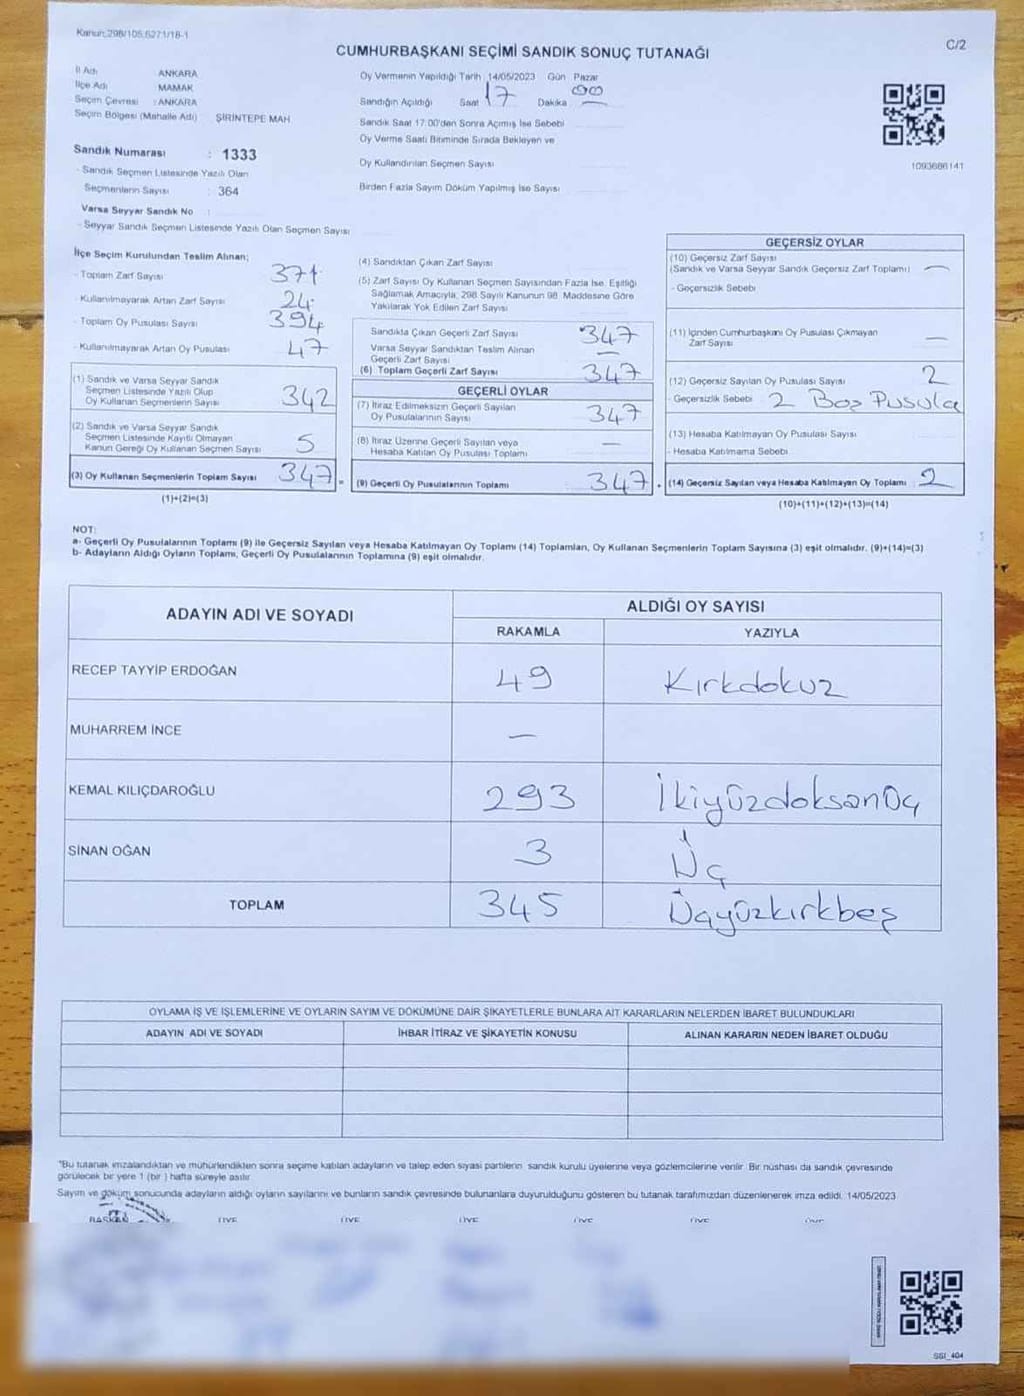 Kanun:298/105,6271/18-1
C/2
CUMHURBAŞKANI SEÇİMİ SANDIK SONUÇ TUTANAĞI
İl Adı ANKARA
İlçe Adı MAMAK
Seçim Çevresi : ANKARA
Seçim Bölgesi (Mahalle Adı) ŞİRİNTEPE MAH
Sandık Numarası : 1333
- Sandık Seçmen Listesinde Yazılı Olan
Seçmenlerin Sayısı : 364
Varsa Seyyar Sandık No :
- Seyyar Sandık Seçmen Listesinde Yazılı Olan Seçmen Sayısı
Oy Vermenin Yapıldığı Tarih 14/05/2023 Gün Pazar
Sandığın Açıldığı Saat 17 Dakika 00
Sandık Saat 17:00'den Sonra Açmış İse Sebebi
Oy Verme Saati Bitiminde Sırada Bekleyen ve
Oy Kullandırılan Seçmen Sayısı
Birden Fazla Sayım Döküm Yapılmış İse Sayısı
1093686141
İlçe Seçim Kurulundan Teslim Alınan;
- Toplam Zarf Sayısı 371
- Kullanılmayarak Artan Zarf Sayısı 24
- Toplam Oy Pusulası Sayısı 394
- Kullanılmayarak Artan Oy Pusulası 47
(1) Sandık ve Varsa Seyyar Sandık
Seçmen Listesinde Yazılı Olup
Oy Kullanan Seçmenlerin Sayısı 342
(2) Sandık ve Varsa Seyyar Sandık
Seçmen Listesinde Kayıtlı Olmayan
Kanun Gereği Oy Kullanan Seçmen Sayısı 5
(3) Oy Kullanan Seçmenlerin Toplam Sayısı 347
(1)+(2)=(3)
(4) Sandıktan Çıkan Zarf Sayısı
(5) Zarf Sayısı Oy Kullanan Seçmen Sayısından Fazla İse, Eşitliği
Sağlamak Amacıyla, 298 Sayılı Kanunun 98. Maddesine Göre
Yakılarak Yok Edilen Zarf Sayısı
Sandıkta Çıkan Geçerli Zarf Sayısı 347
Varsa Seyyar Sandıktan Teslim Alınan
Geçerli Zarf Sayısı —
(6) Toplam Geçerli Zarf Sayısı 347
GEÇERLİ OYLAR
(7) İtiraz Edilmeksizin Geçerli Sayılan
Oy Pusulalarının Sayısı 347
(8) İtiraz Üzerine Geçerli Sayılan veya
Hesaba Katılan Oy Pusulası Toplamı —
= (9) Geçerli Oy Pusulalarının Toplamı 347
GEÇERSİZ OYLAR
(10) Geçersiz Zarf Sayısı
(Sandık ve Varsa Seyyar Sandık Geçersiz Zarf Toplamı) —
- Geçersizlik Sebebi
(11) İçinden Cumhurbaşkanı Oy Pusulası Çıkmayan
Zarf Sayısı —
(12) Geçersiz Sayılan Oy Pusulası Sayısı 2
- Geçersizlik Sebebi 2 Boş Pusula
(13) Hesaba Katılmayan Oy Pusulası Sayısı
- Hesaba Katılmama Sebebi
+ (14) Geçersiz Sayılan veya Hesaba Katılmayan Oy Toplamı : 2
(10)+(11)+(12)+(13)=(14)
NOT:
a- Geçerli Oy Pusulalarının Toplamı (9) ile Geçersiz Sayılan veya Hesaba Katılmayan Oy Toplamı (14) Toplamları, Oy Kullanan Seçmenlerin Toplam Sayısına (3) eşit olmalıdır. (9)+(14)=(3)
b- Adayların Aldığı Oyların Toplamı, Geçerli Oy Pusulalarının Toplamına (9) eşit olmalıdır.
ADAYIN ADI VE SOYADI
ALDIĞI OY SAYISI
RAKAMLA YAZIYLA
RECEP TAYYİP ERDOĞAN 49 Kırkdokuz
MUHARREM İNCE —
KEMAL KILIÇDAROĞLU 293 İkiyüzdoksanüç
SİNAN OĞAN 3 Üç
TOPLAM 345 Üçyüzkırkbeş
OYLAMA İŞ VE İŞLEMLERİNE VE OYLARIN SAYIM VE DÖKÜMÜNE DAİR ŞİKAYETLERLE BUNLARA AİT KARARLARIN NELERDEN İBARET BULUNDUKLARI
ADAYIN ADI VE SOYADI İHBAR İTİRAZ VE ŞİKAYETİN KONUSU ALINAN KARARIN NEDEN İBARET OLDUĞU
"Bu tutanak imzalandıktan ve mühürlendikten sonra seçime katılan adayların ve talep eden siyasi partilerin sandık kurulu üyelerine veya gözlemcilerine verilir. Bir nüshası da sandık çevresinde
görülecek bir yere 1 (bir) hafta süreyle asılır.
Sayım ve döküm sonucunda adayların aldığı oyların sayılarını ve bunların sandık çevresinde bulunanlara duyurulduğunu gösteren bu tutanak tarafımızdan düzenlenerek imza edildi. 14/05/2023
BAŞKAN ÜYE ÜYE ÜYE ÜYE ÜYE ÜYE
SSI_404